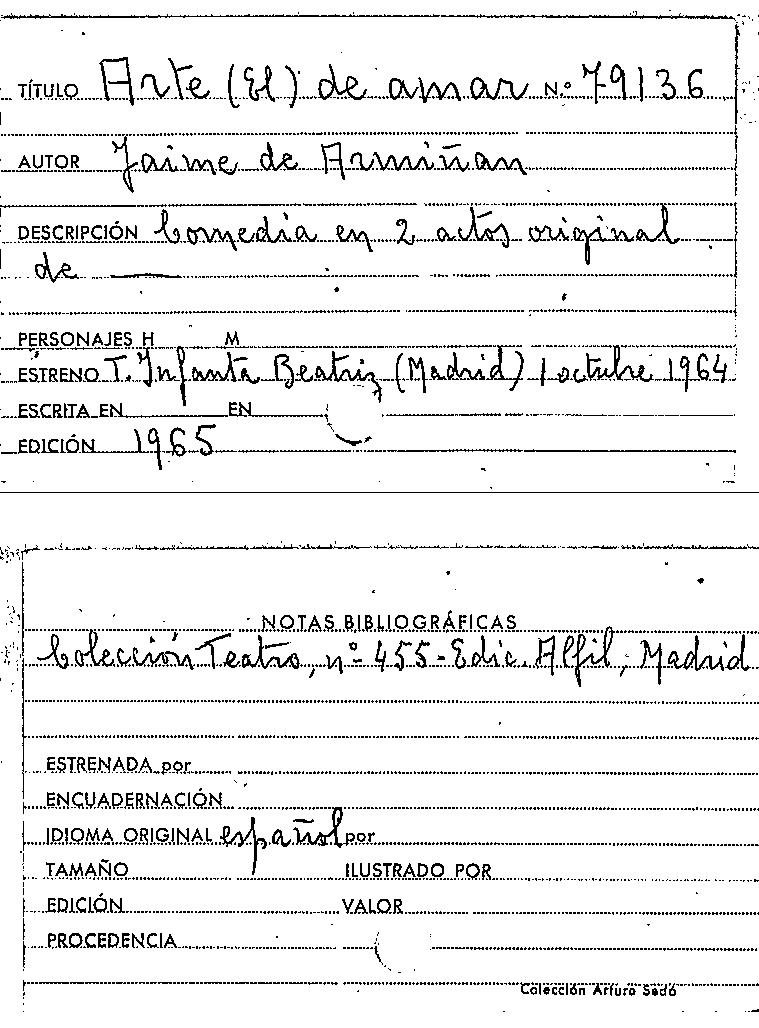 TÍTULO Arte (El) de amar N.º 79136
AUTOR Jaime de Armiñan
DESCRIPCIÓN Comedia en 2 actos original
de ——
PERSONAJES H M
ESTRENO T. Infanta Beatriz (Madrid) 1 octubre 1964
ESCRITA EN EN
EDICIÓN 1965
NOTAS BIBLIOGRÁFICAS
Colección Teatro, nº 455 - Edic. Alfil, Madrid
ESTRENADA por
ENCUADERNACIÓN
IDIOMA ORIGINAL español por
TAMAÑO ILUSTRADO POR
EDICIÓN VALOR
PROCEDENCIA
Colección Arturo Sedó